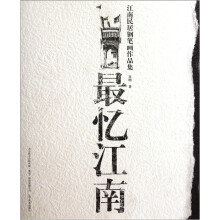 江南民居钢笔画作品集
最忆江南